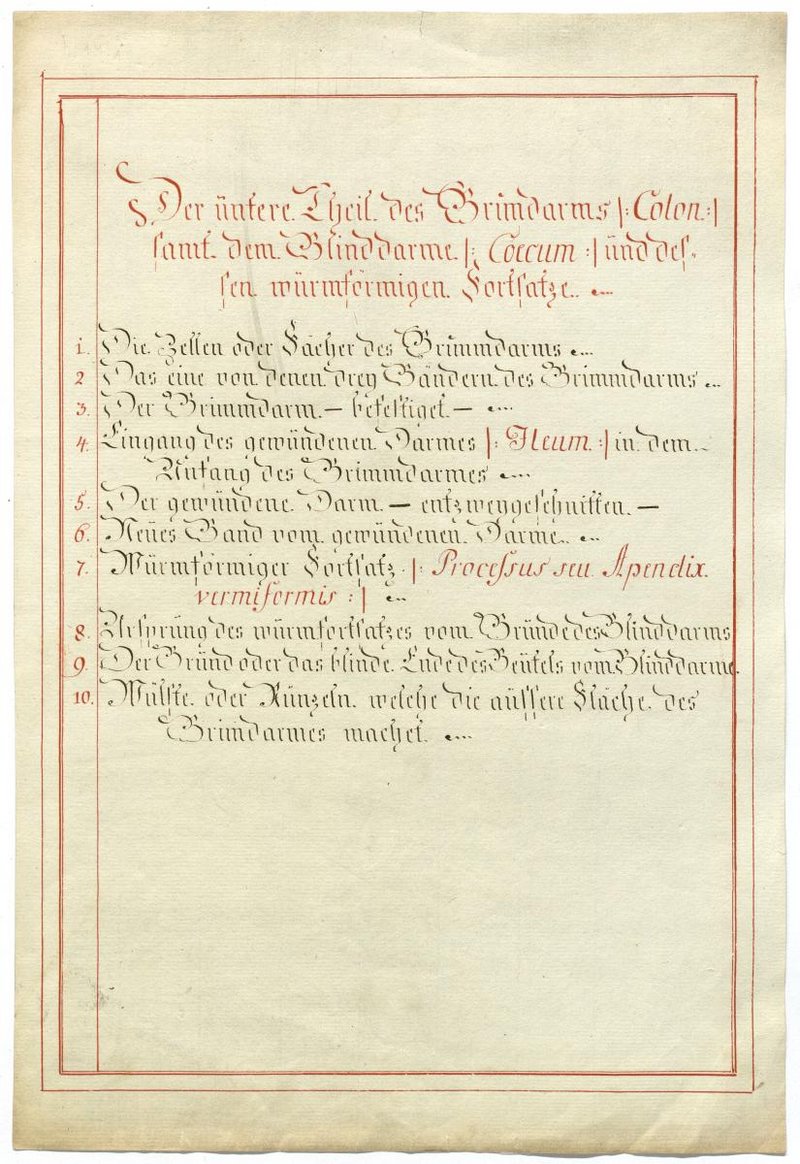 Der untere Theil des Brimdarms |: Colon :|
samt dem Blinddarme |: Coecum :| und des-
sen wurmförmigen Fortsatze.
1. Die Zellen oder Fächer des Brimmdarms
2 Das eine von denen drey Bändern des Brimmdarms
3. Der Brimmdarm. — befestiget. —
4. Eingang des gewundenen Darmes |: Ileum :| in dem
Anfang des Brimmdarmes
5. Der gewundene Darm — entzweygeschnitten. —
6. Neues Band vom gewundenen Darme.
7. Wurmförmiger Fortsatz |: Processus seu Apendix
vermiformis :|
8. Ursprung des wurmfortsatzes vom Grunde des Blinddarms
9. Der Grund oder das blinde Ende des Beutels vom Blinddarme.
10. Wülste oder Runzeln welche die äussere Fläche des
Brimdarmes machet.